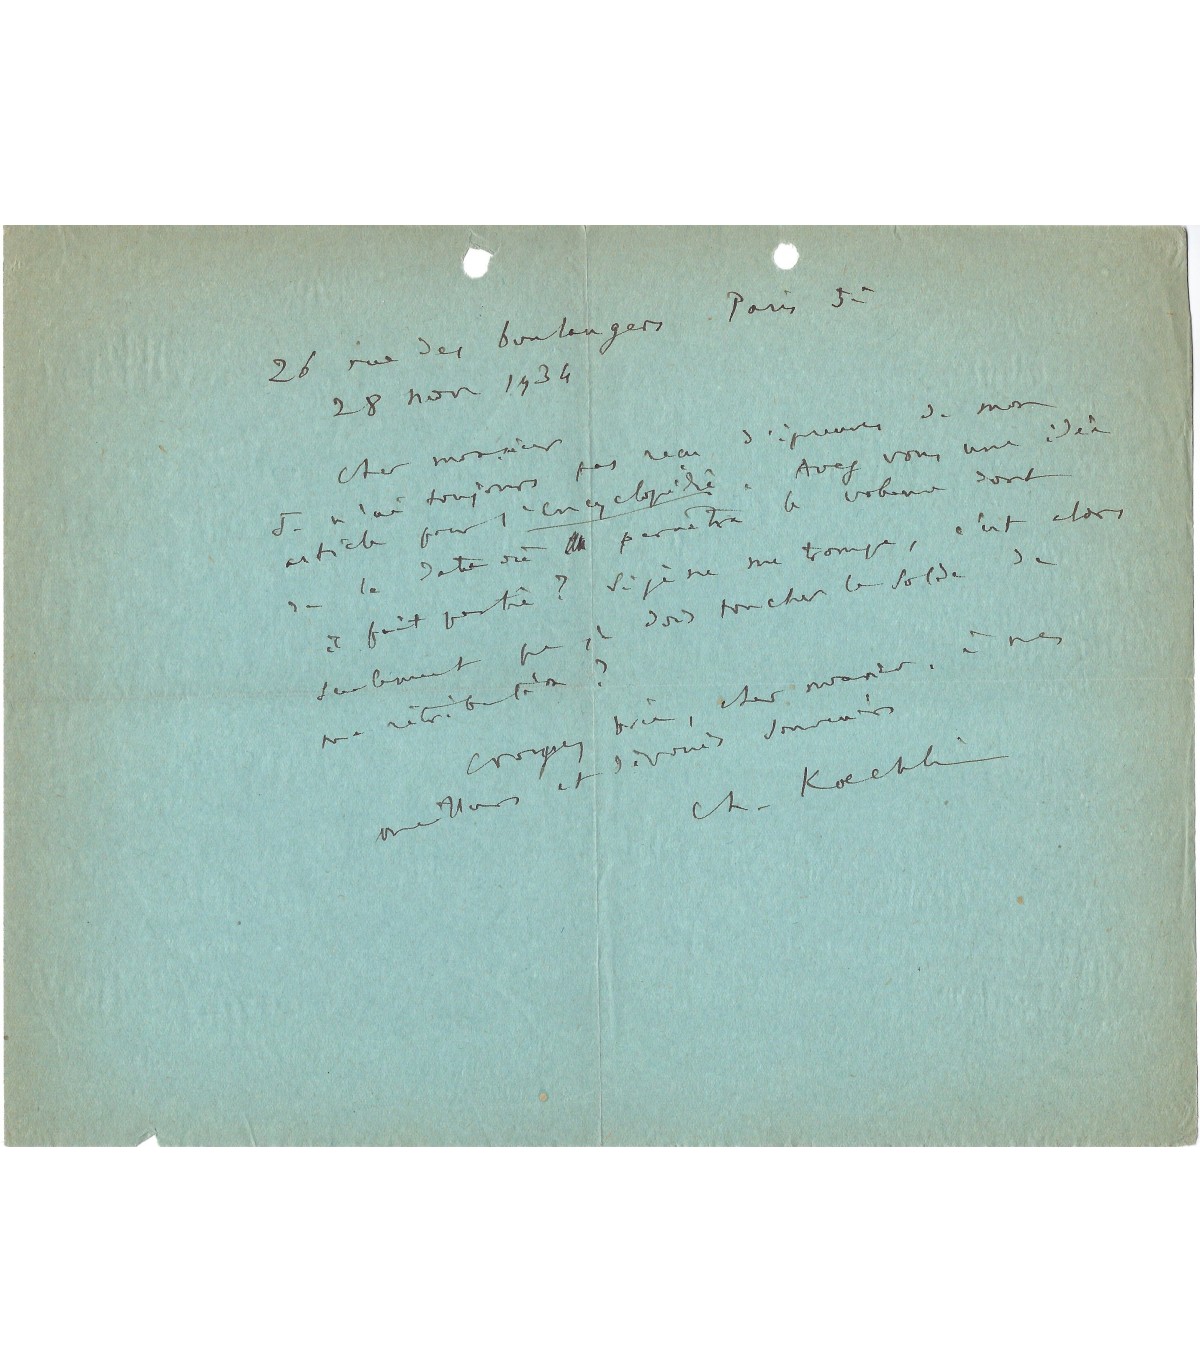 26 rue des boulangers Paris 5e
28 nov 1934
Cher monsieur
Je n'ai toujours pas reçu d'épreuves de mon
article pour l'encyclopédie. Avez vous une idée
de la date où paraîtra le volume dont
il fait partie ? Si je ne me trompe, c'est alors
seulement que je dois toucher le solde de
ma rétribution ?
Croyez bien, cher monsieur, à mes
meilleurs et dévoués souvenirs
Ch. Koechlin